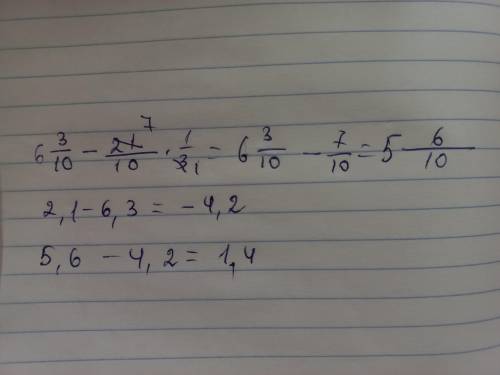 6 3/10 − 21/10 · 1/3 = 6 3/10 − 7/10 = 5 6/10
2,1 − 6,3 = −4,2
5,6 − 4,2 = 1,4